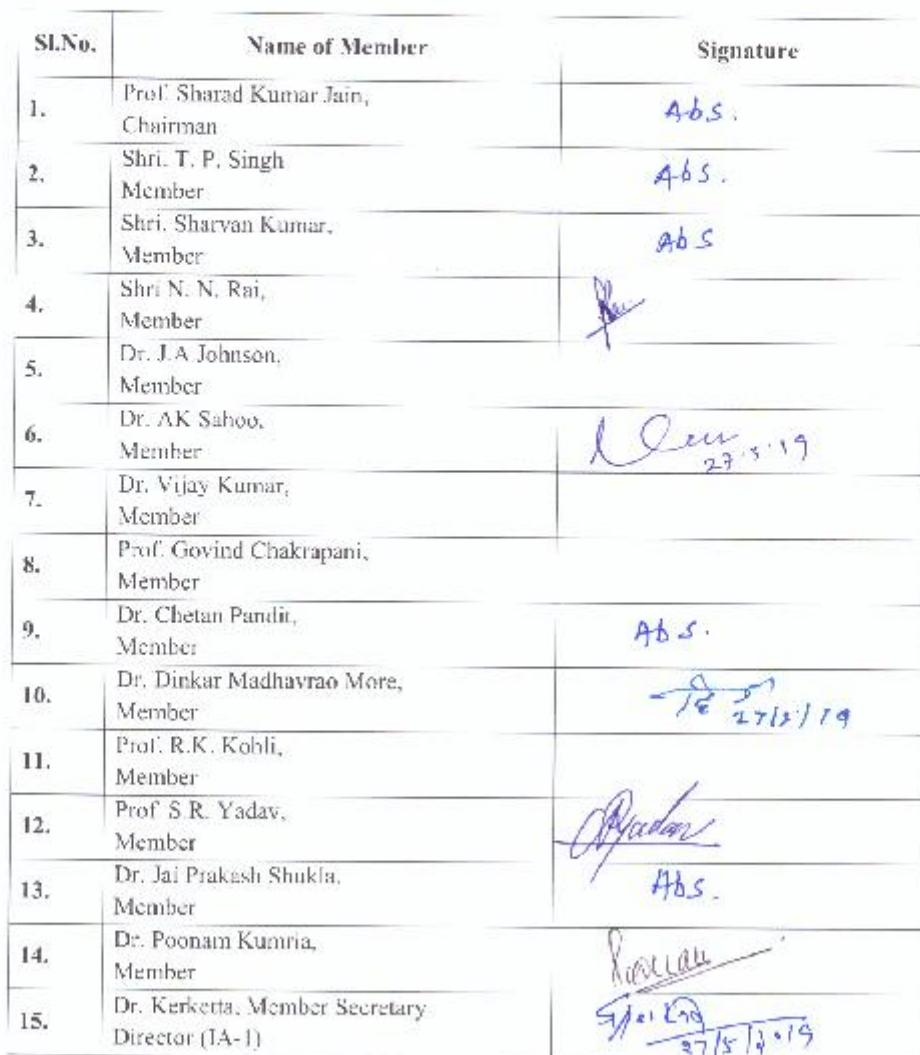 Sl.No. Name of Member Signature
1. Prof. Sharad Kumar Jain, Abs.
Chairman
2. Shri. T. P. Singh Abs.
Member
3. Shri. Sharvan Kumar, Abs
Member
4. Shri N. N. Rai,
Member
5. Dr. J.A Johnson,
Member
6. Dr. AK Sahoo,
Member 27.5.19
7. Dr. Vijay Kumar,
Member
8. Prof. Govind Chakrapani,
Member
9. Dr. Chetan Pandit, Abs.
Member
10. Dr. Dinkar Madhavrao More,
Member 27/5/19
11. Prof. R.K. Kohli,
Member
12. Prof S.R. Yadav, Yadav
Member
13. Dr. Jai Prakash Shukla, Abs.
Member
14. Dr. Poonam Kumria,
Member
15. Dr. Kerketta, Member Secretary
Director (IA-1) 27/5/2019